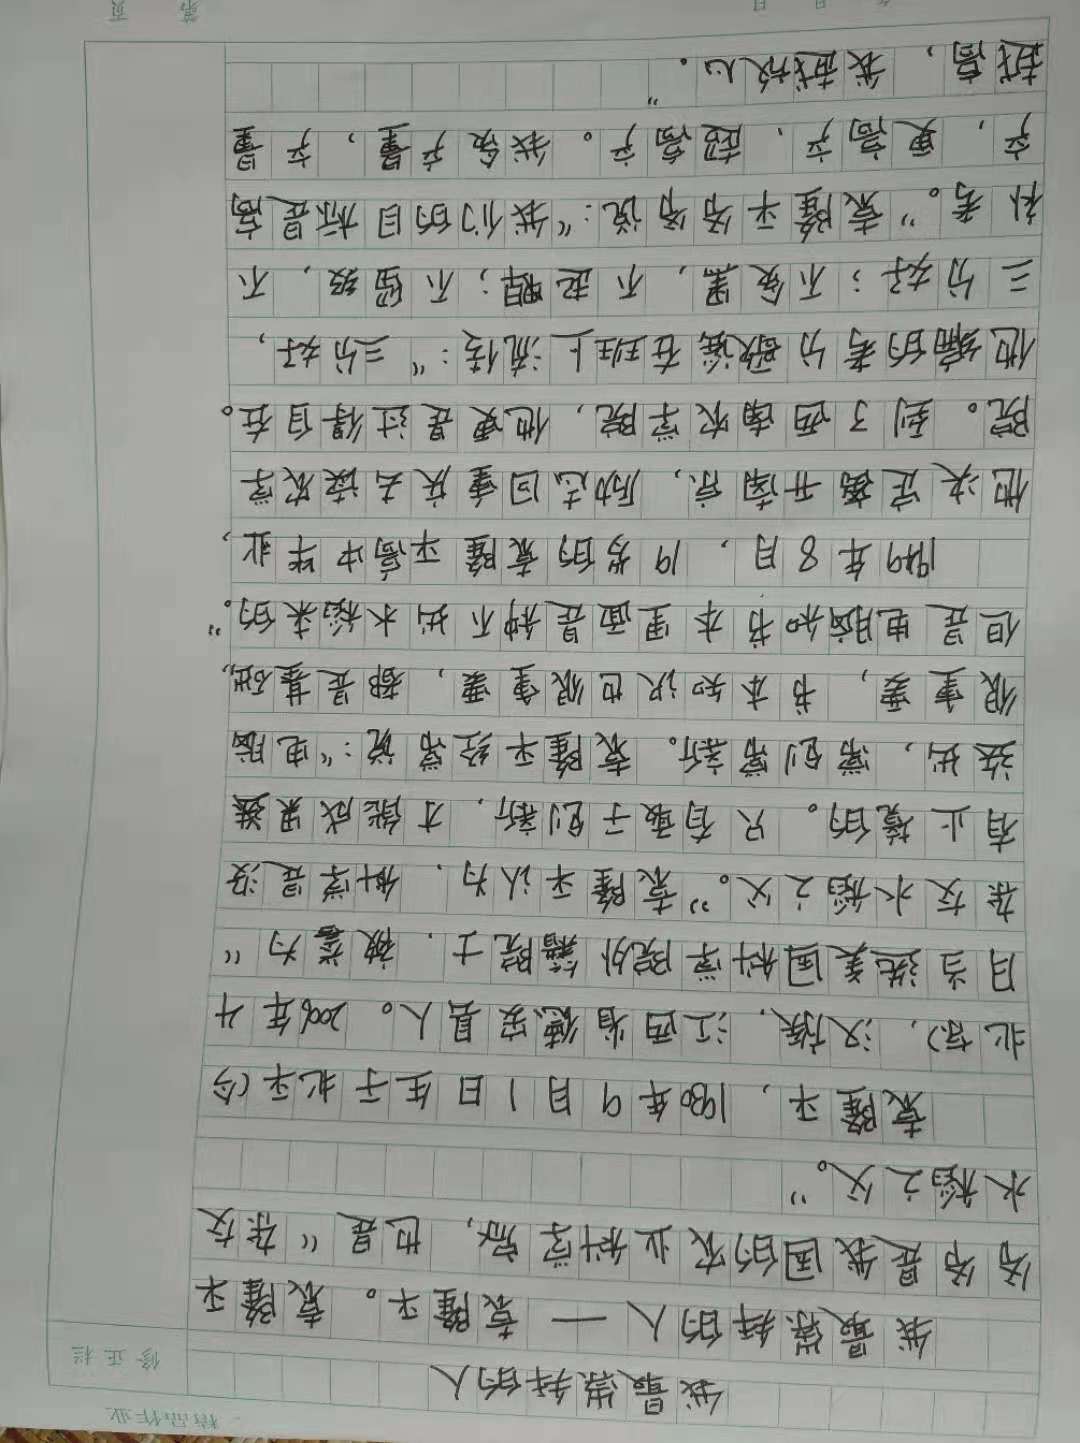 精品作业
修正栏
我最崇拜的人
我最崇拜的人——袁隆平。袁隆平
爷爷是我国的农业科学家，也是“杂交
水稻之父。”
袁隆平，1930年9月1日生于北平（今
北京），汉族，江西省德安县人。2006年4
月当选美国科学院外籍院士．被誉为“
杂交水稻之父。”袁隆平认为．科学是没
有止境的。只有敢于创新，才能成果迭
迭出，常创常新。袁隆平经常说：“电脑
很重要，书本知识也很重要，都是基础，
但是电脑和书本里面是种不出水稻来的。”
1949年8月，19岁的袁隆平高中毕业，
他决定离开南京，励志回重庆去读农学
院。到了西南农学院，他更是过得自在。
他编的考分歌谣在班上流传：“三分好，
三分好；不贪黑，不起早；不留级，不
补考。”袁隆平爷爷说：“我们的目标是高
产，更高产，超高产。我象产量，产量
越高，我越放心。”
第 页
年 月 日